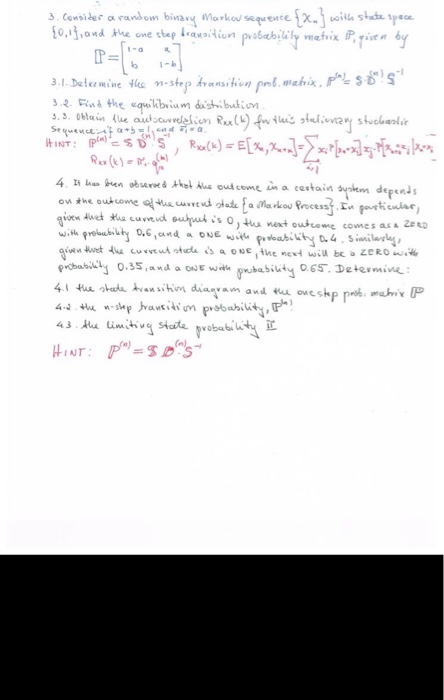 3. Consider a random binary Markov sequence {Xn} with state space
{0,1}, and the one step transition probability matrix ℙ, given by
ℙ = [1-a a
b 1-b]
3.1. Determine the n-step transition prob. matrix, ℙ^(n) = S·D^(n)·S^-1
3.2. Find the equilibrium distribution.
3.3. Obtain the autocorrelation Rxx(k) for this stationary stochastic
Sequence, if a+b=1, and = a.
HINT: ℙ^(n) = S D^(n) S^-1, Rxx(k) = E[Xn, Xn+k] = Σ xi P[xn=xi] xj P[xn+k=xj | xn=xi
Rxx(k) =
4. It has been observed that the outcome in a certain system depends
on the outcome of the current state {a Markov Process}. In particular,
given that the current output is 0, the next outcome comes as a ZERO
with probability 0.6, and a ONE with probability 0.4. Similarly,
given that the current state is a ONE, the next will be a ZERO with
probability 0.35, and a ONE with probability 0.65. Determine:
4.1 the state transition diagram and the one step prob. matrix ℙ
4.2. the n-step transition probability, ℙ^(n)
4.3. the limiting state probability Π
HINT: ℙ^(n) = S D^(n) S^-1